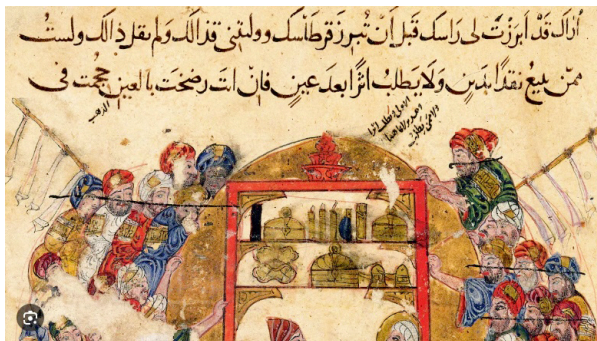 أراك قَدْ أبرَزتَ لى رَاسكَ قَبلَ انْ تُبرزَ قرطَاسك ووليتَنى قذالك ولم تقل ذالك ولستُ
ممّن يبيعُ نقدًا بدَينٍ ولَا يطلبُ اثرًا بعدَ عينٍ فانْ انتَ رضختَ بالعينِ حجمت فى
الذهب